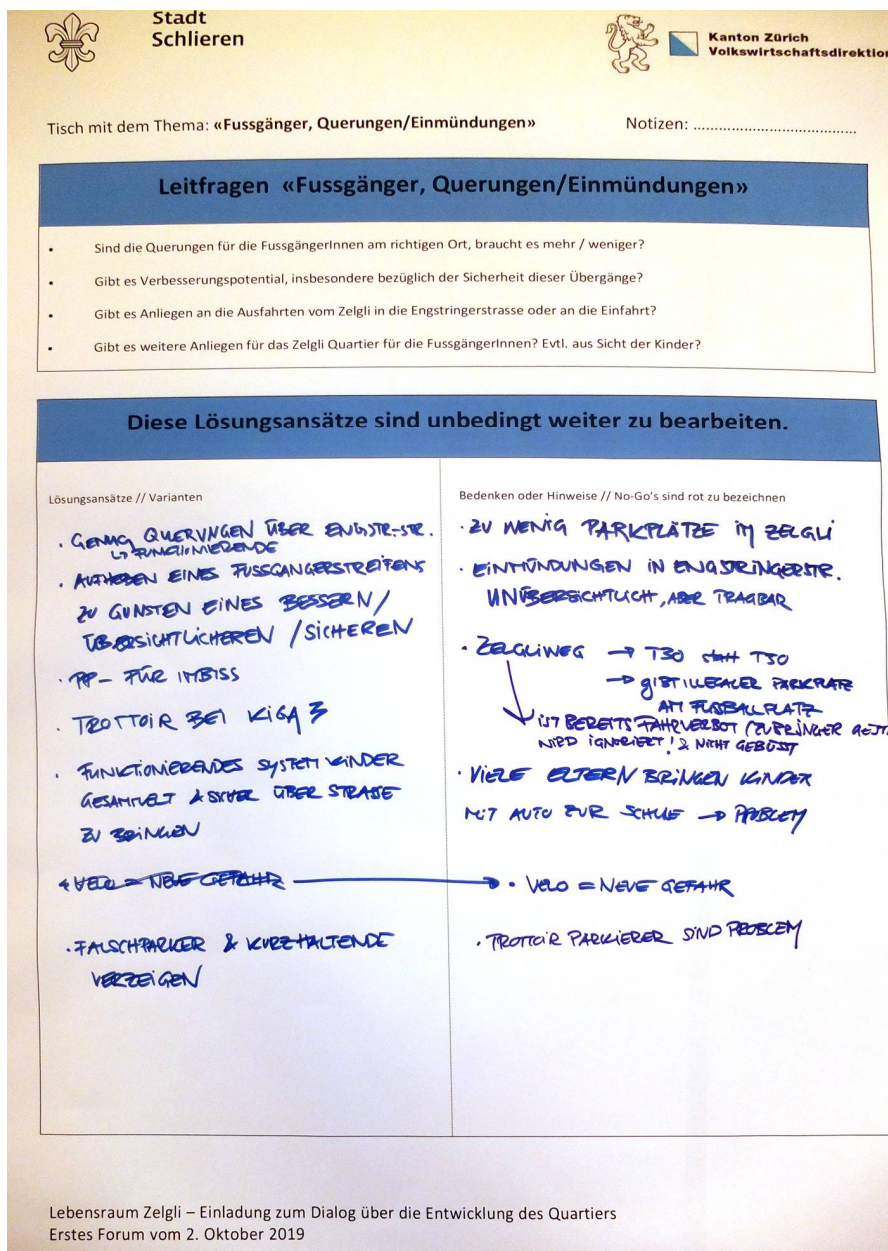 Stadt
Schlieren
Kanton Zürich
Volkswirtschaftsdirektion
Tisch mit dem Thema: «Fussgänger, Querungen/Einmündungen»
Notizen: ......................................
Leitfragen «Fussgänger, Querungen/Einmündungen»
• Sind die Querungen für die FussgängerInnen am richtigen Ort, braucht es mehr / weniger?
• Gibt es Verbesserungspotential, insbesondere bezüglich der Sicherheit dieser Übergänge?
• Gibt es Anliegen an die Ausfahrten vom Zelgli in die Engstringerstrasse oder an die Einfahrt?
• Gibt es weitere Anliegen für das Zelgli Quartier für die FussgängerInnen? Evtl. aus Sicht der Kinder?
Diese Lösungsansätze sind unbedingt weiter zu bearbeiten.
Lösungsansätze // Varianten
· GENUG QUERUNGEN ÜBER ENGSTR-STR.
↳ FUNCTIONIERENDE
· AUFHEBEN EINES FUSSGANGERSTREIFENS
ZU GUNSTEN EINES BESSERN/
ÜBERSICHTLICHEREN / SICHEREN
· PP – FÜR IMBISS
· TROTTOIR BEI KIGA 3
· FUNKTIONIERENDES SYSTEM KINDER
GESAMMELT & SICHER ÜBER STRASSE
ZU BRINGEN
· VELO = NEUE GEFAHR
· FALSCHPARKER & KURZHALTENDE
VERZEIGEN
Bedenken oder Hinweise // No-Go's sind rot zu bezeichnen
· ZU WENIG PARKPLÄTZE IM ZELGLI
· EINMÜNDUNGEN IN ENGSTRINGERSTR.
UNÜBERSICHTLICH, ABER TRAGBAR
· ZELGLIWEG → T30 statt T50
→ GIBT ILLEGALER PARKPLATZ
AM FUSBALLPLATZ
IST BEREITS FAHRVERBOT (ZUBRINGER
WIRD IGNORIERT! & NICHT GEBÜSST
· VIELE ELTERN BRINGEN KINDER
MIT AUTO ZUR SCHULE → PROBLEM
· VELO = NEUE GEFAHR
· TROTTOIR PARKIERER SIND PROBLEM
Lebensraum Zelgli – Einladung zum Dialog über die Entwicklung des Quartiers
Erstes Forum vom 2. Oktober 2019